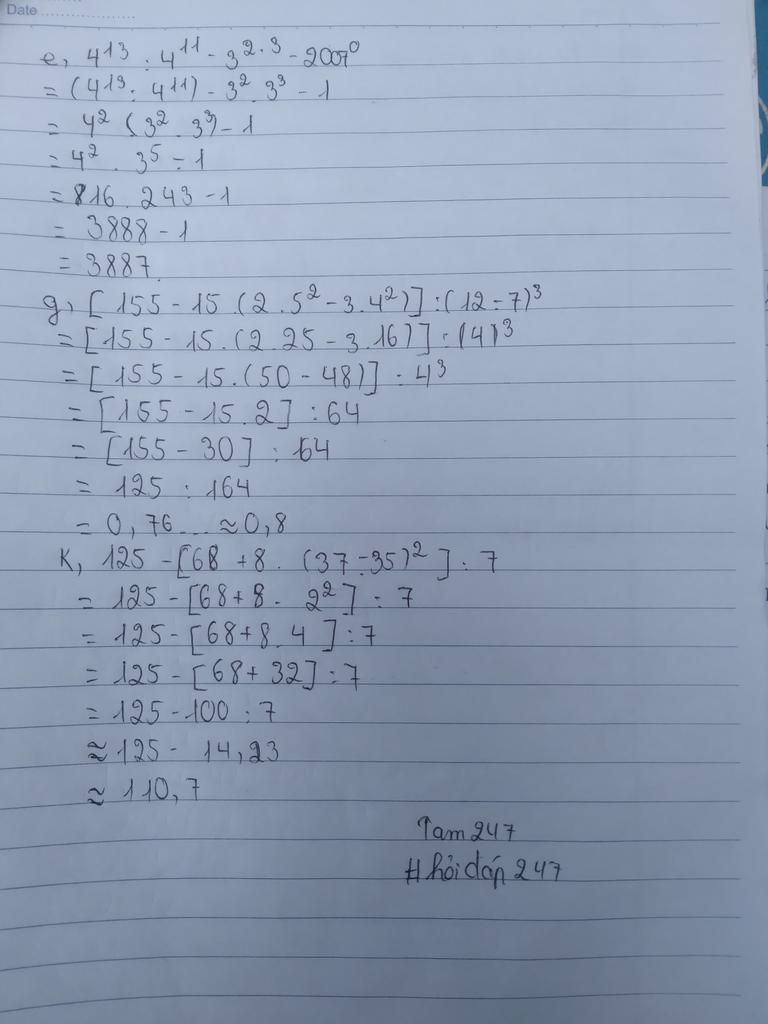 Date
e, 4¹³ : 4¹¹ - 3²·³ - 2007⁰
= (4¹³ : 4¹¹) - 3² . 3³ - 1
= 4² (3² . 3³) - 1
= 4² . 3⁵ - 1
= 816 . 243 - 1
= 3888 - 1
= 3887.
g, [155 - 15 . (2 . 5² - 3 . 4²)] : (12 - 7)³
= [155 - 15 . (2 . 25 - 3 . 16)] : (4)³
= [155 - 15 . (50 - 48)] : 4³
= [155 - 15 . 2] : 64
= [155 - 30] : 64
= 125 : 164
= 0,76... ≈ 0,8
K, 125 - [68 + 8 . (37 - 35)²] : 7
= 125 - [68 + 8 . 2²] : 7
= 125 - [68 + 8 . 4] : 7
= 125 - [68 + 32] : 7
= 125 - 100 : 7
≈ 125 - 14,23
≈ 110,7
Tam247
#hỏiđáp247